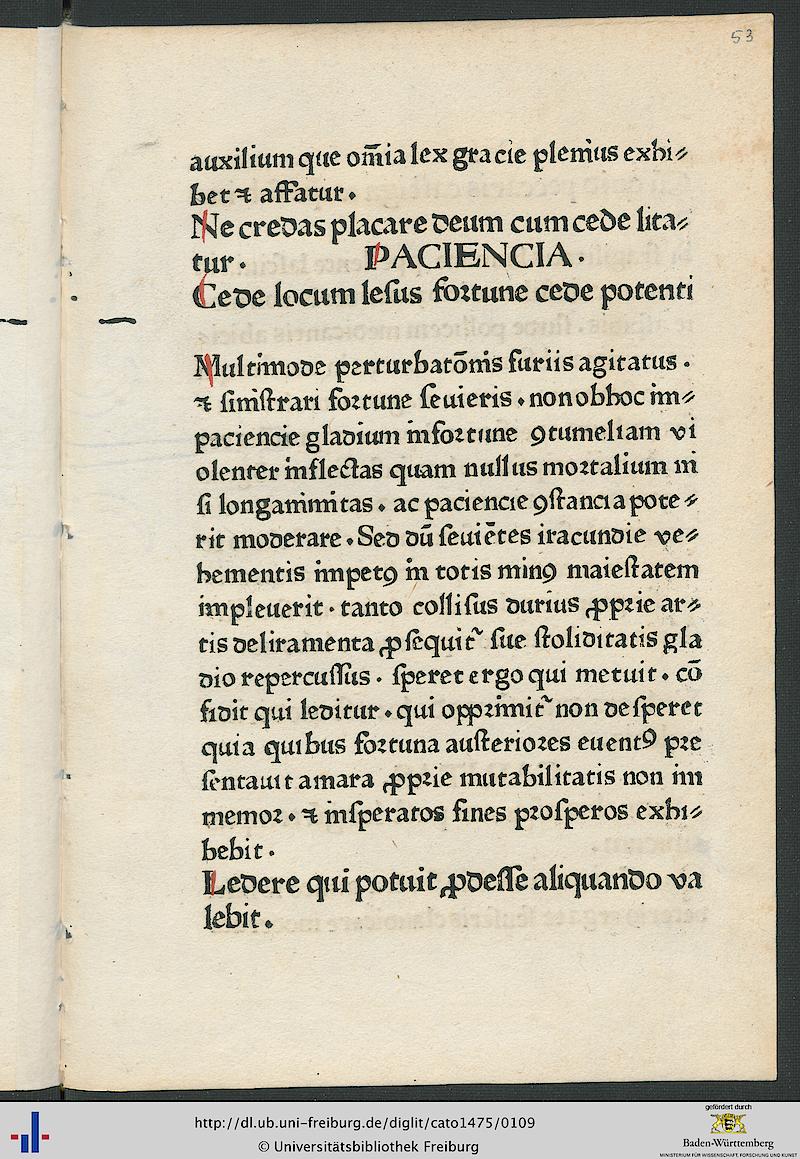 53
auxilium que om̄ia lex gracie plenius exhi⸗
bet ⁊ affatur.
Ne credas placare deum cum cede lita⸗
tur. PACIENCIA.
Cede locum lesus fortune cede potenti
Multimode perturbatōnis furiis agitatus.
⁊ sinistrari fortune seuieris. non ob hoc im⸗
paciencie gladium infortune ꝯtumeliam vi
olenter inflectas quam nullus mortalium ni
si longanimitas. ac paciencie ꝯstancia pote⸗
rit moderare. Sed dū seuiētes iracundie ve⸗
hementis impetꝰ in totis minꝰ maiestatem
impleuerit. tanto collisus durius ꝓprie ar⸗
tis deliramenta ꝓsequit᷑ sue stoliditatis gla
dio repercussus. speret ergo qui metuit. cō
fidit qui leditur. qui opprimit᷑ non desperet
quia quibus fortuna austeriores euentꝰ pre
sentauit amara ꝓprie mutabilitatis non im
memor. ⁊ insperatos fines prosperos exhi⸗
bebit.
Ledere qui potuit ꝓdesse aliquando va
lebit.
http://dl.ub.uni-freiburg.de/diglit/cato1475/0109
© Universitätsbibliothek Freiburg
gefördert durch
Baden-Württemberg
MINISTERIUM FÜR WISSENSCHAFT, FORSCHUNG UND KUNST